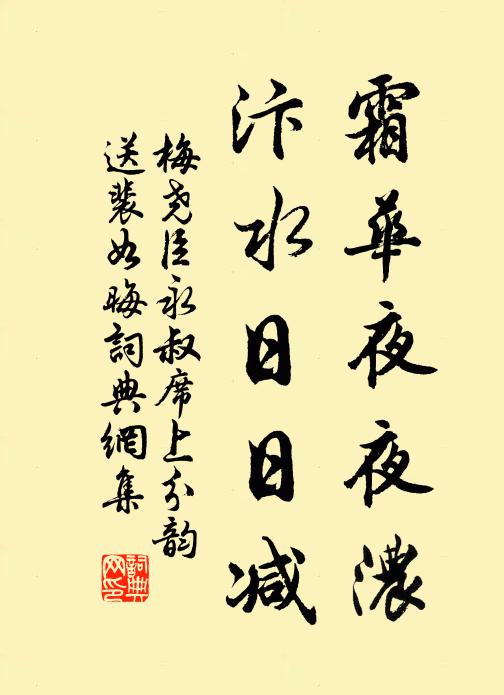 霜華夜夜濃
汴水日日减
梅尧臣永叔席上分韵
送裴如晦詞典網集
詞典网印